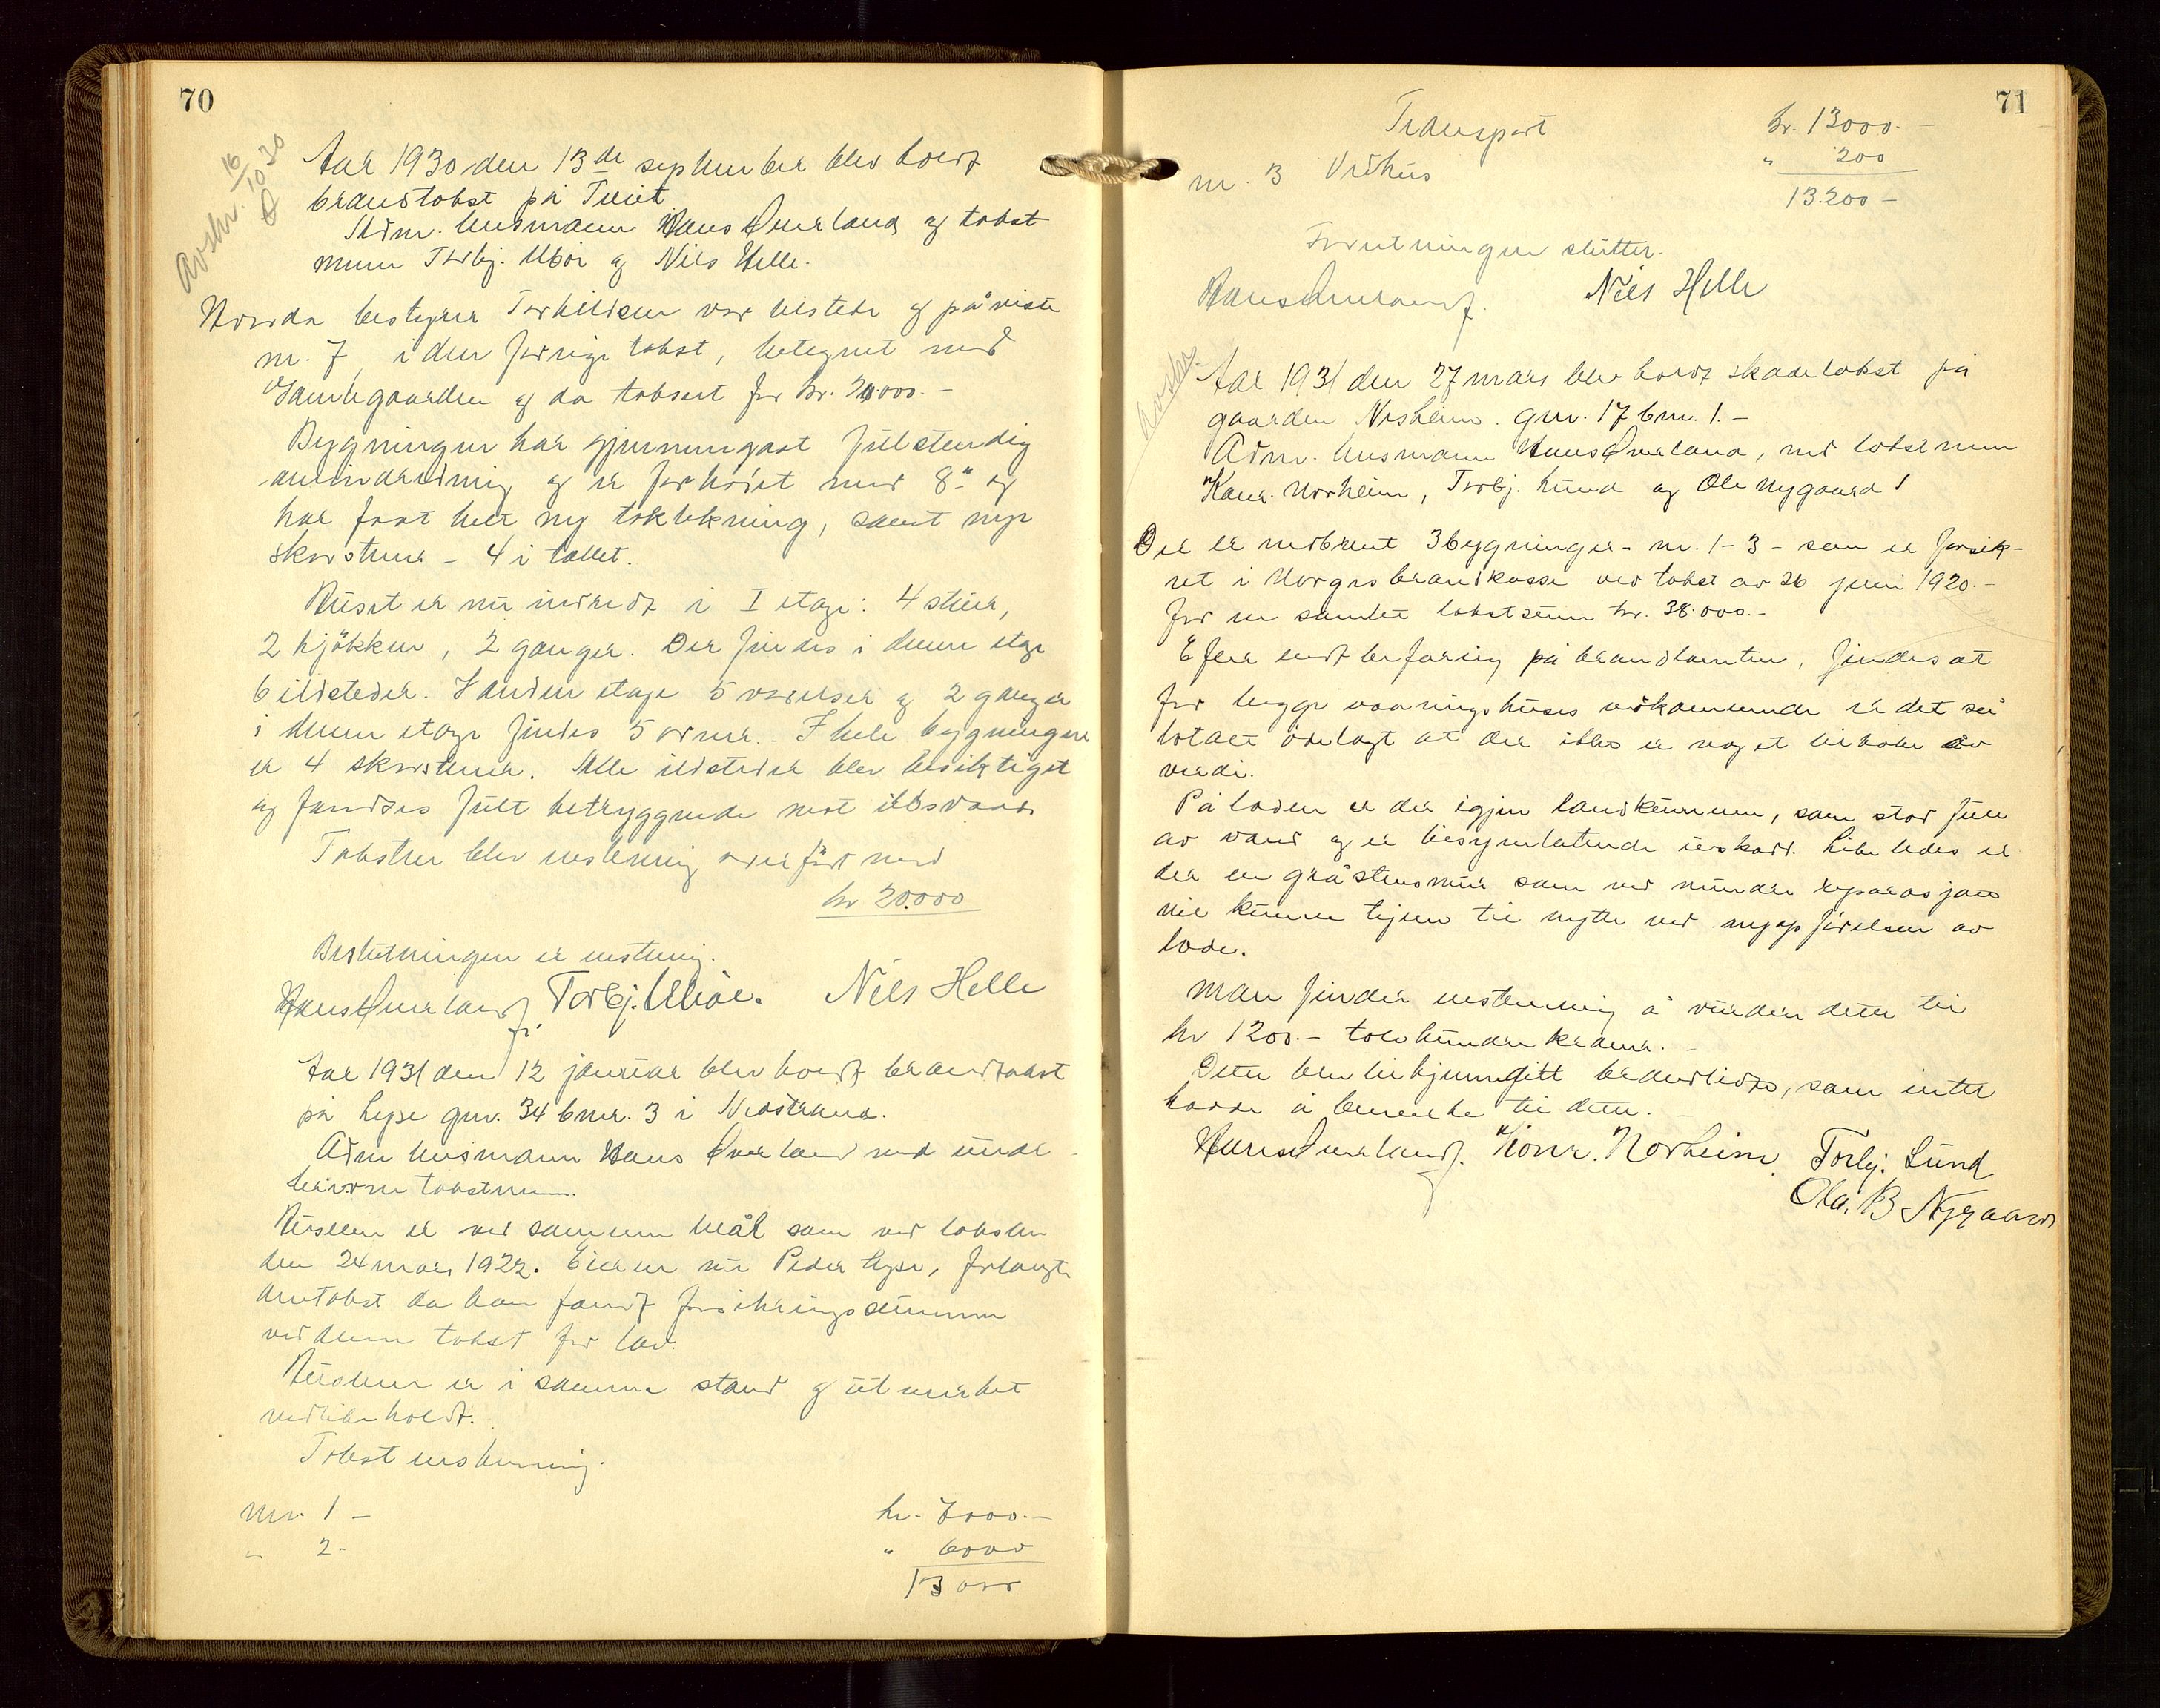 70
Avskr. 16/10 30
Aar 1930 den 13de september blev holdt
brandtakst på Tveit
Adm. lensmann Hans Øverland og takst
menn Torbj. Uboe og Nils Helle.
bestyrer Torkildsen var tilstede og påviste
nr. 7 i den forrige takst, betegnet med
Gamlegaarden og da taksert for kr.
Bygningen har gjennemgaat fulstendig
og er forhøiet med 8" og
har faat helt ny taktekning, samt nye
skorstene – 4 i tallet.
Huset er nu indredt i I etage: 4 stuer,
2 kjøkken, 2 ganger. Der findes i denne etage
6 ildsteder. I anden etage 5 værelser og 2 ganger
i denne etage findes 5 ovner. I hele bygningen
er 4 skorstene. Alle ildsteder blev besiktiget
og fandtes fult betryggende mot ildsvaade
Taksten blev enstemmig ført med
kr 20.000
Beslutningen er enstemmig.
Hans Øverland Torbj. Uboe. Nils Helle
Aar 1931 den 12 januar blev holdt brandtakst
på Lepse gnr. 34 bnr. 3 i Nedstrand.
Adm lensmann Hans Øverland med
takstmenn.
Husene er ved samme mål som ved taksten
den 24 mars 1922. Eieren nu Peder Lepse, forlangte
takst da han fandt forsikringssummen
ved denne takst for lav.
Husene er i samme stand og utmerket
vedlikeholdt.
Takst enstemmig.
Nr. 1 – kr. 7000.–
" 2 - " 6000
13000
71
Transport kr. 13000.–
nr. 3 Vedhus " 200
13.200 –
Forretningen slutter.
Hans Øverland. Nils Helle
Avskr.
Aar 1931 den 27 mars blev holdt skadetakst på
gaarden Nesheim. gnr. 17 bnr. 1.–
Adm. lensmann Hans Øverland, med takstmenn
Norheim, Torbj. Lund og Ole Nygaard
Der er nedbrent 3 bygninger – nr. 1 – 3 – som er forsik-
ret i Norges brandkasse ved takst av 26 juni 1920.–
for en samlet takstsum kr. 38.000.–
Efter endt befaring på brandtomten, findes at
for begge vaaningshuses vedkommende er det så
totalt ødelagt at der ikke er noget tilbake av
verdi.
På loden er der igjen landkummen, som stod full
av vand og er tilsynelatende uskadt. Likeledes er
der en gråstensmur som ved mindre reparasjon
vil kunne tjene til nytte ved nyopførelsen av
lode.
Man finder enstemmig å vurdere dette til
kr 1200.– tolvhundre kroner.–
Dette blev tilkjennegitt brandlidte, som intet
hadde å bemerke til dette.–
Hans Øverland. Norheim. Torbj. Lund
Ola. B Nygaard